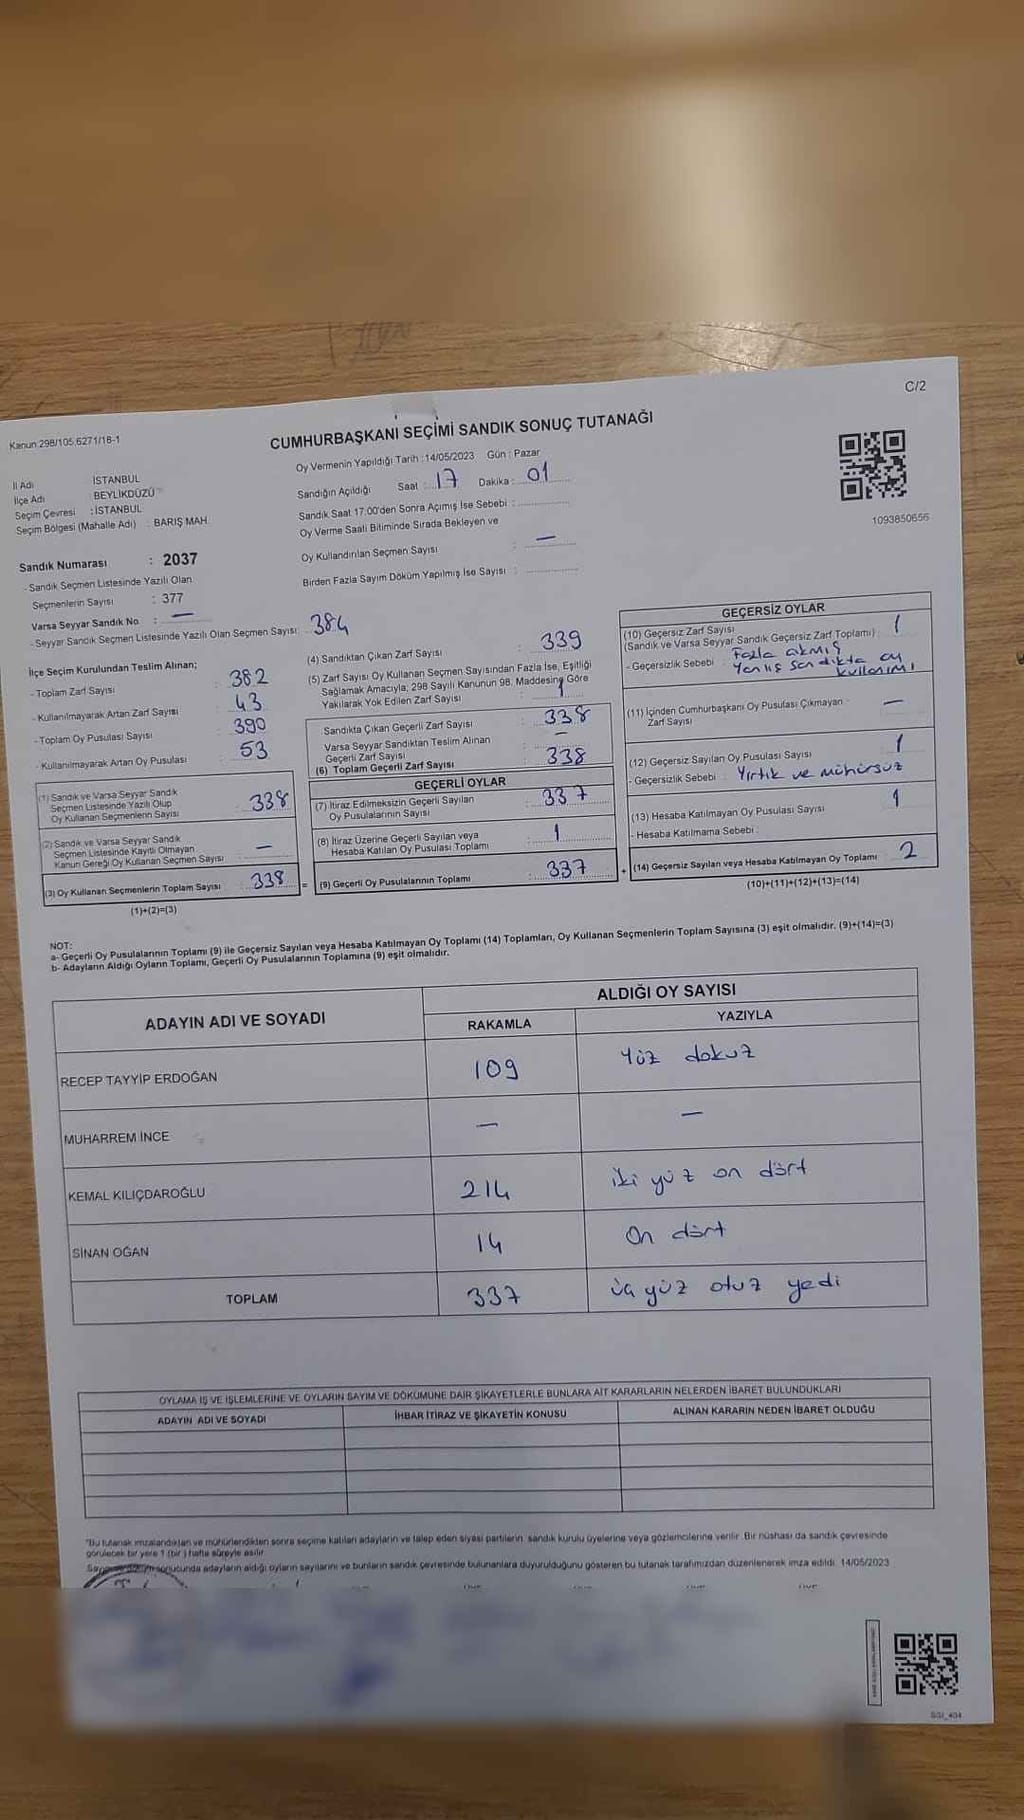 C/2
Kanun 298/105,6271/16-1
CUMHURBAŞKANI SEÇİMİ SANDIK SONUÇ TUTANAĞI
İl Adı : İSTANBUL
İlçe Adı : BEYLİKDÜZÜ
Seçim Çevresi : İSTANBUL
Seçim Bölgesi (Mahalle Adı) : BARIŞ MAH.
Oy Vermenin Yapıldığı Tarih : 14/05/2023 Gün : Pazar
Sandığın Açıldığı Saat : 17 Dakika : 01
Sandık Saat 17:00'den Sonra Açılmış İse Sebebi :
Oy Verme Saati Bitiminde Sırada Bekleyen ve
Oy Kullandırılan Seçmen Sayısı : —
Birden Fazla Sayım Döküm Yapılmış İse Sayısı :
1093850656
Sandık Numarası : 2037
- Sandık Seçmen Listesinde Yazılı Olan
Seçmenlerin Sayısı : 377
Varsa Seyyar Sandık No : —
- Seyyar Sandık Seçmen Listesinde Yazılı Olan Seçmen Sayısı: 384
İlçe Seçim Kurulundan Teslim Alınan;
- Toplam Zarf Sayısı : 382
- Kullanılmayarak Artan Zarf Sayısı : 43
- Toplam Oy Pusulası Sayısı : 390
- Kullanılmayarak Artan Oy Pusulası : 53
(1) Sandık ve Varsa Seyyar Sandık
Seçmen Listesinde Yazılı Olup
Oy Kullanan Seçmenlerin Sayısı : 338
(2) Sandık ve Varsa Seyyar Sandık
Seçmen Listesinde Kayıtlı Olmayan
Kanun Gereği Oy Kullanan Seçmen Sayısı : —
(3) Oy Kullanan Seçmenlerin Toplam Sayısı : 338 =
(1)+(2)=(3)
(4) Sandıktan Çıkan Zarf Sayısı : 339
(5) Zarf Sayısı Oy Kullanan Seçmen Sayısından Fazla İse, Eşitliği
Sağlamak Amacıyla, 298 Sayılı Kanunun 98. Maddesine Göre
Yakılarak Yok Edilen Zarf Sayısı : 1
Sandıkta Çıkan Geçerli Zarf Sayısı : 338
Varsa Seyyar Sandıktan Teslim Alınan
Geçerli Zarf Sayısı : —
(6) Toplam Geçerli Zarf Sayısı : 338
GEÇERLİ OYLAR
(7) İtiraz Edilmeksizin Geçerli Sayılan
Oy Pusulalarının Sayısı : 337
(8) İtiraz Üzerine Geçerli Sayılan veya
Hesaba Katılan Oy Pusulası Toplamı : 1
(9) Geçerli Oy Pusulalarının Toplamı : 337 +
GEÇERSİZ OYLAR
(10) Geçersiz Zarf Sayısı
(Sandık ve Varsa Seyyar Sandık Geçersiz Zarf Toplamı) : 1
- Geçersizlik Sebebi : Fazla akmış
Yanlış sandıkta oy
kullanımı
(11) İçinden Cumhurbaşkanı Oy Pusulası Çıkmayan
Zarf Sayısı : —
(12) Geçersiz Sayılan Oy Pusulası Sayısı : 1
- Geçersizlik Sebebi : Yırtık ve mühürsüz
(13) Hesaba Katılmayan Oy Pusulası Sayısı : 1
- Hesaba Katılmama Sebebi :
(14) Geçersiz Sayılan veya Hesaba Katılmayan Oy Toplamı : 2
(10)+(11)+(12)+(13)=(14)
NOT:
a- Geçerli Oy Pusulalarının Toplamı (9) ile Geçersiz Sayılan veya Hesaba Katılmayan Oy Toplamı (14) Toplamları, Oy Kullanan Seçmenlerin Toplam Sayısına (3) eşit olmalıdır. (9)+(14)=(3)
b- Adayların Aldığı Oyların Toplamı, Geçerli Oy Pusulalarının Toplamına (9) eşit olmalıdır.
ADAYIN ADI VE SOYADI ALDIĞI OY SAYISI
RAKAMLA YAZIYLA
RECEP TAYYİP ERDOĞAN 109 Yüz dokuz
MUHARREM İNCE — —
KEMAL KILIÇDAROĞLU 214 iki yüz on dört
SİNAN OĞAN 14 On dört
TOPLAM 337 üç yüz otuz yedi
OYLAMA İŞ VE İŞLEMLERİNE VE OYLARIN SAYIM VE DÖKÜMÜNE DAİR ŞİKAYETLERLE BUNLARA AİT KARARLARIN NELERDEN İBARET BULUNDUKLARI
ADAYIN ADI VE SOYADI İHBAR İTİRAZ VE ŞİKAYETİN KONUSU ALINAN KARARIN NEDEN İBARET OLDUĞU
*Bu tutanak imzalandıktan ve mühürlendikten sonra seçime katılan adayların ve talep eden siyasi partilerin sandık kurulu üyelerine veya gözlemcilerine verilir. Bir nüshası da sandık çevresinde
görülecek bir yere 1 (bir) hafta süreyle asılır.
sonucunda adayların aldığı oyların sayılarını ve bunların sandık çevresinde bulunanlara duyurulduğunu gösteren bu tutanak tarafımızdan düzenlenerek imza edildi. 14/05/2023
SGI_404